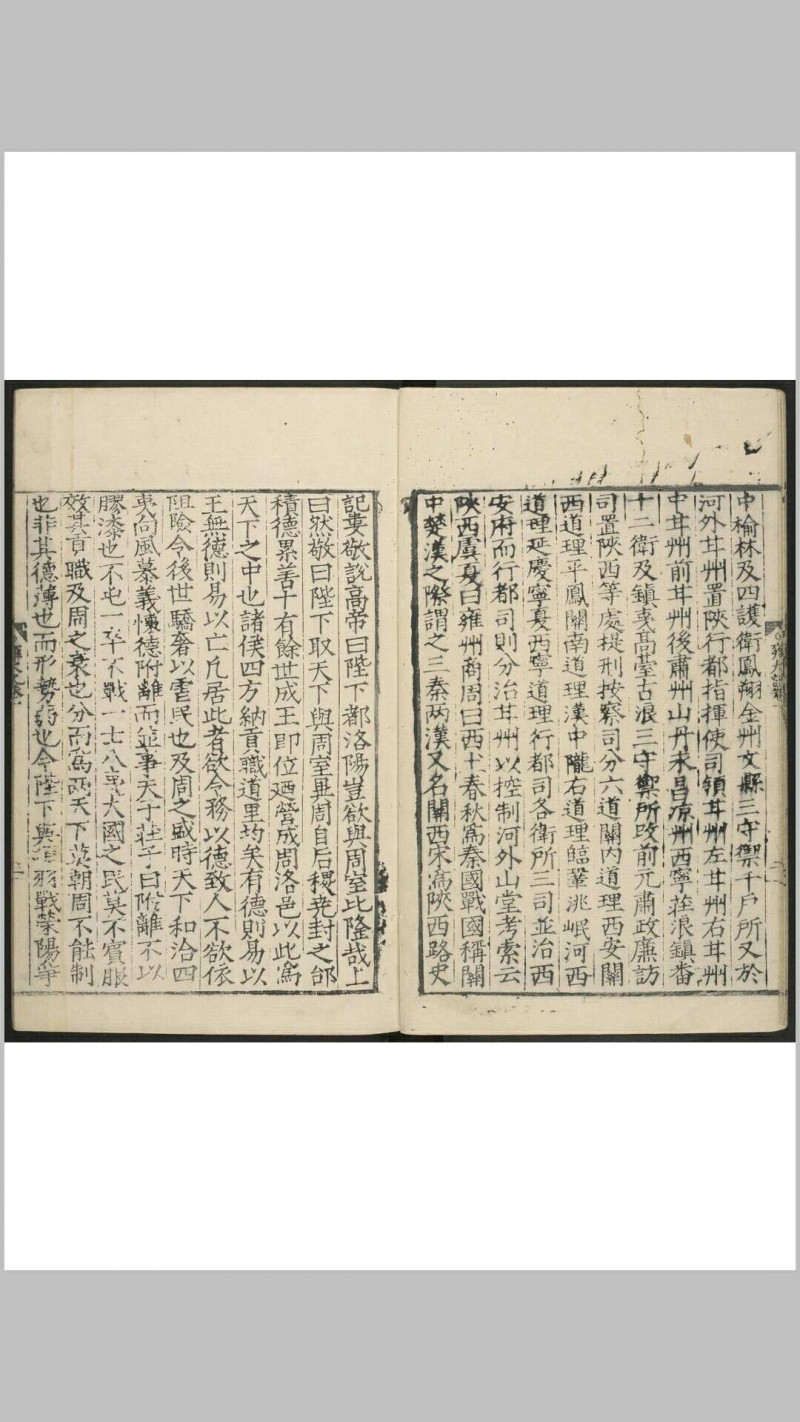 中榆林及四護衛鳳翔金州文縣三守禦千戶所又於
河外甘州置陝行都指揮使司領甘州左甘州右甘州
中甘州前甘州後肅州山丹永昌凉州西寧莊浪鎮番
十二衛及鎮夷高臺古浪三守禦所改前元肅政廉訪
司置陝西等處提刑按察司分六道關内道理西安關
西道理平鳳關南道理漢中隴右道理臨鞏洮岷河西
道理延慶寧夏西寧道理行都司各衛所三司並治西
安府而行都司則分治甘州以控制河外山堂考索云
陝西虞夏曰雍州商周曰西土春秋爲秦國戰國稱關
中楚漢之際謂之三秦兩漢又名關西宋爲陝西路史
記婁敬說高帝曰陛下都洛陽豈欲與周室比隆哉上
曰然敬曰陛下取天下與周室異周自后稷堯封之邰
積德累善十有餘世成王即位廼營成周洛邑以此爲
天下之中也諸侯四方納貢職道里均矣有德則易以
王無德則易以亡凡居此者欲令務以德致人不欲依
阻險令後世驕奢以虐民也及周之盛時天下和洽四
夷向風慕義懷德附離而並事天子莊子曰附離不以
膠漆也不屯一卒不戰一士八夷大國之民莫不賓服
效其貢職及周之衰也分而爲兩天下莫朝周不能制
也非其德薄也而形勢弱也今陛下與項羽戰滎陽爭